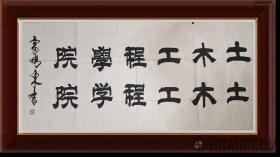 土木工程學院
土木工程学院